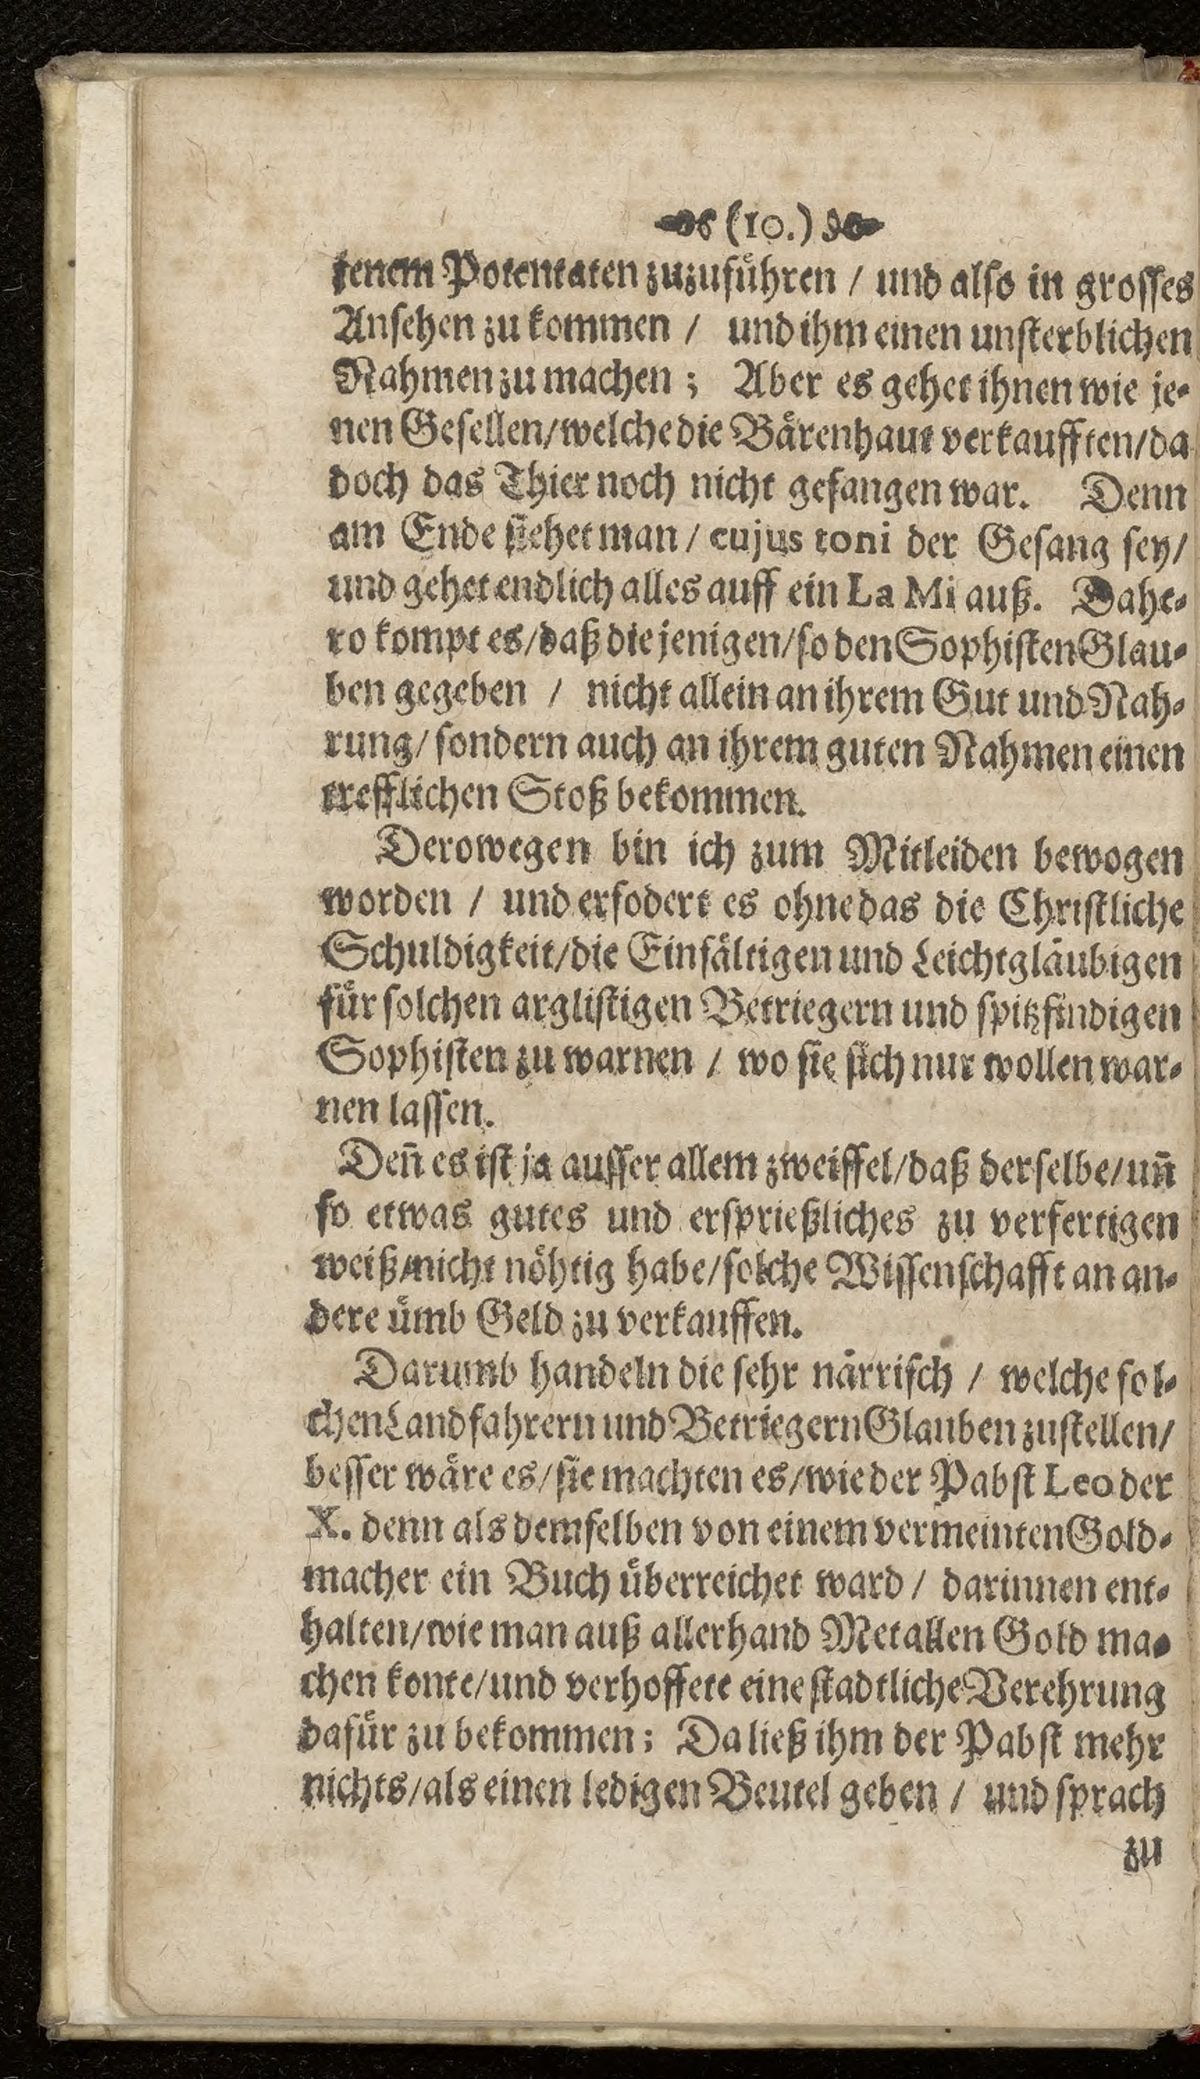 (10.)
jenem Potentaten zuzufuͤhren / und also in grosses
Ansehen zu kommen / und ihm einen unsterblichen
Nahmen zu machen ; Aber es gehet ihnen wie je-
nen Gesellen/welche die Baͤrenhaut verkaufften/da
doch das Thier noch nicht gefangen war. Denn
am Ende siehet man / cujus toni der Gesang sey/
und gehet endlich alles auff ein La Mi auß. Dahe-
ro kompt es/daß die jenigen/so den Sophisten Glau-
ben gegeben / nicht allein an ihrem Gut und Nah-
rung/ sondern auch an ihrem guten Nahmen einen
trefflichen Stoß bekommen.
Derowegen bin ich zum Mitleiden bewogen
worden / und erfodert es ohne das die Christliche
Schuldigkeit/die Einfaͤltigen und Leichtglaͤubigen
fuͤr solchen arglistigen Betriegern und spitzfindigen
Sophisten zu warnen / wo sie sich nur wollen war-
nen lassen.
Deñ es ist ja ausser allem zweiffel/daß derselbe/uñ
so etwas gutes und ersprießliches zu verfertigen
weiß/nicht noͤhtig habe/solche Wissenschafft an an-
dere uͤmb Geld zu verkauffen.
Darumb handeln die sehr naͤrrisch / welche sol-
chen Landfahrern und Betriegern Glauben zustellen/
besser waͤre es/sie machten es/wie der Pabst Leo der
X. denn als demselben von einem vermeinten Gold-
macher ein Buch uͤberreichet ward / darinnen ent-
halten/wie man auß allerhand Metallen Gold ma-
chen konte/und verhoffete eine stadtliche Verehrung
dafuͤr zu bekommen; Da ließ ihm der Pabst mehr
nichts/als einen ledigen Beutel geben / und sprach
zu